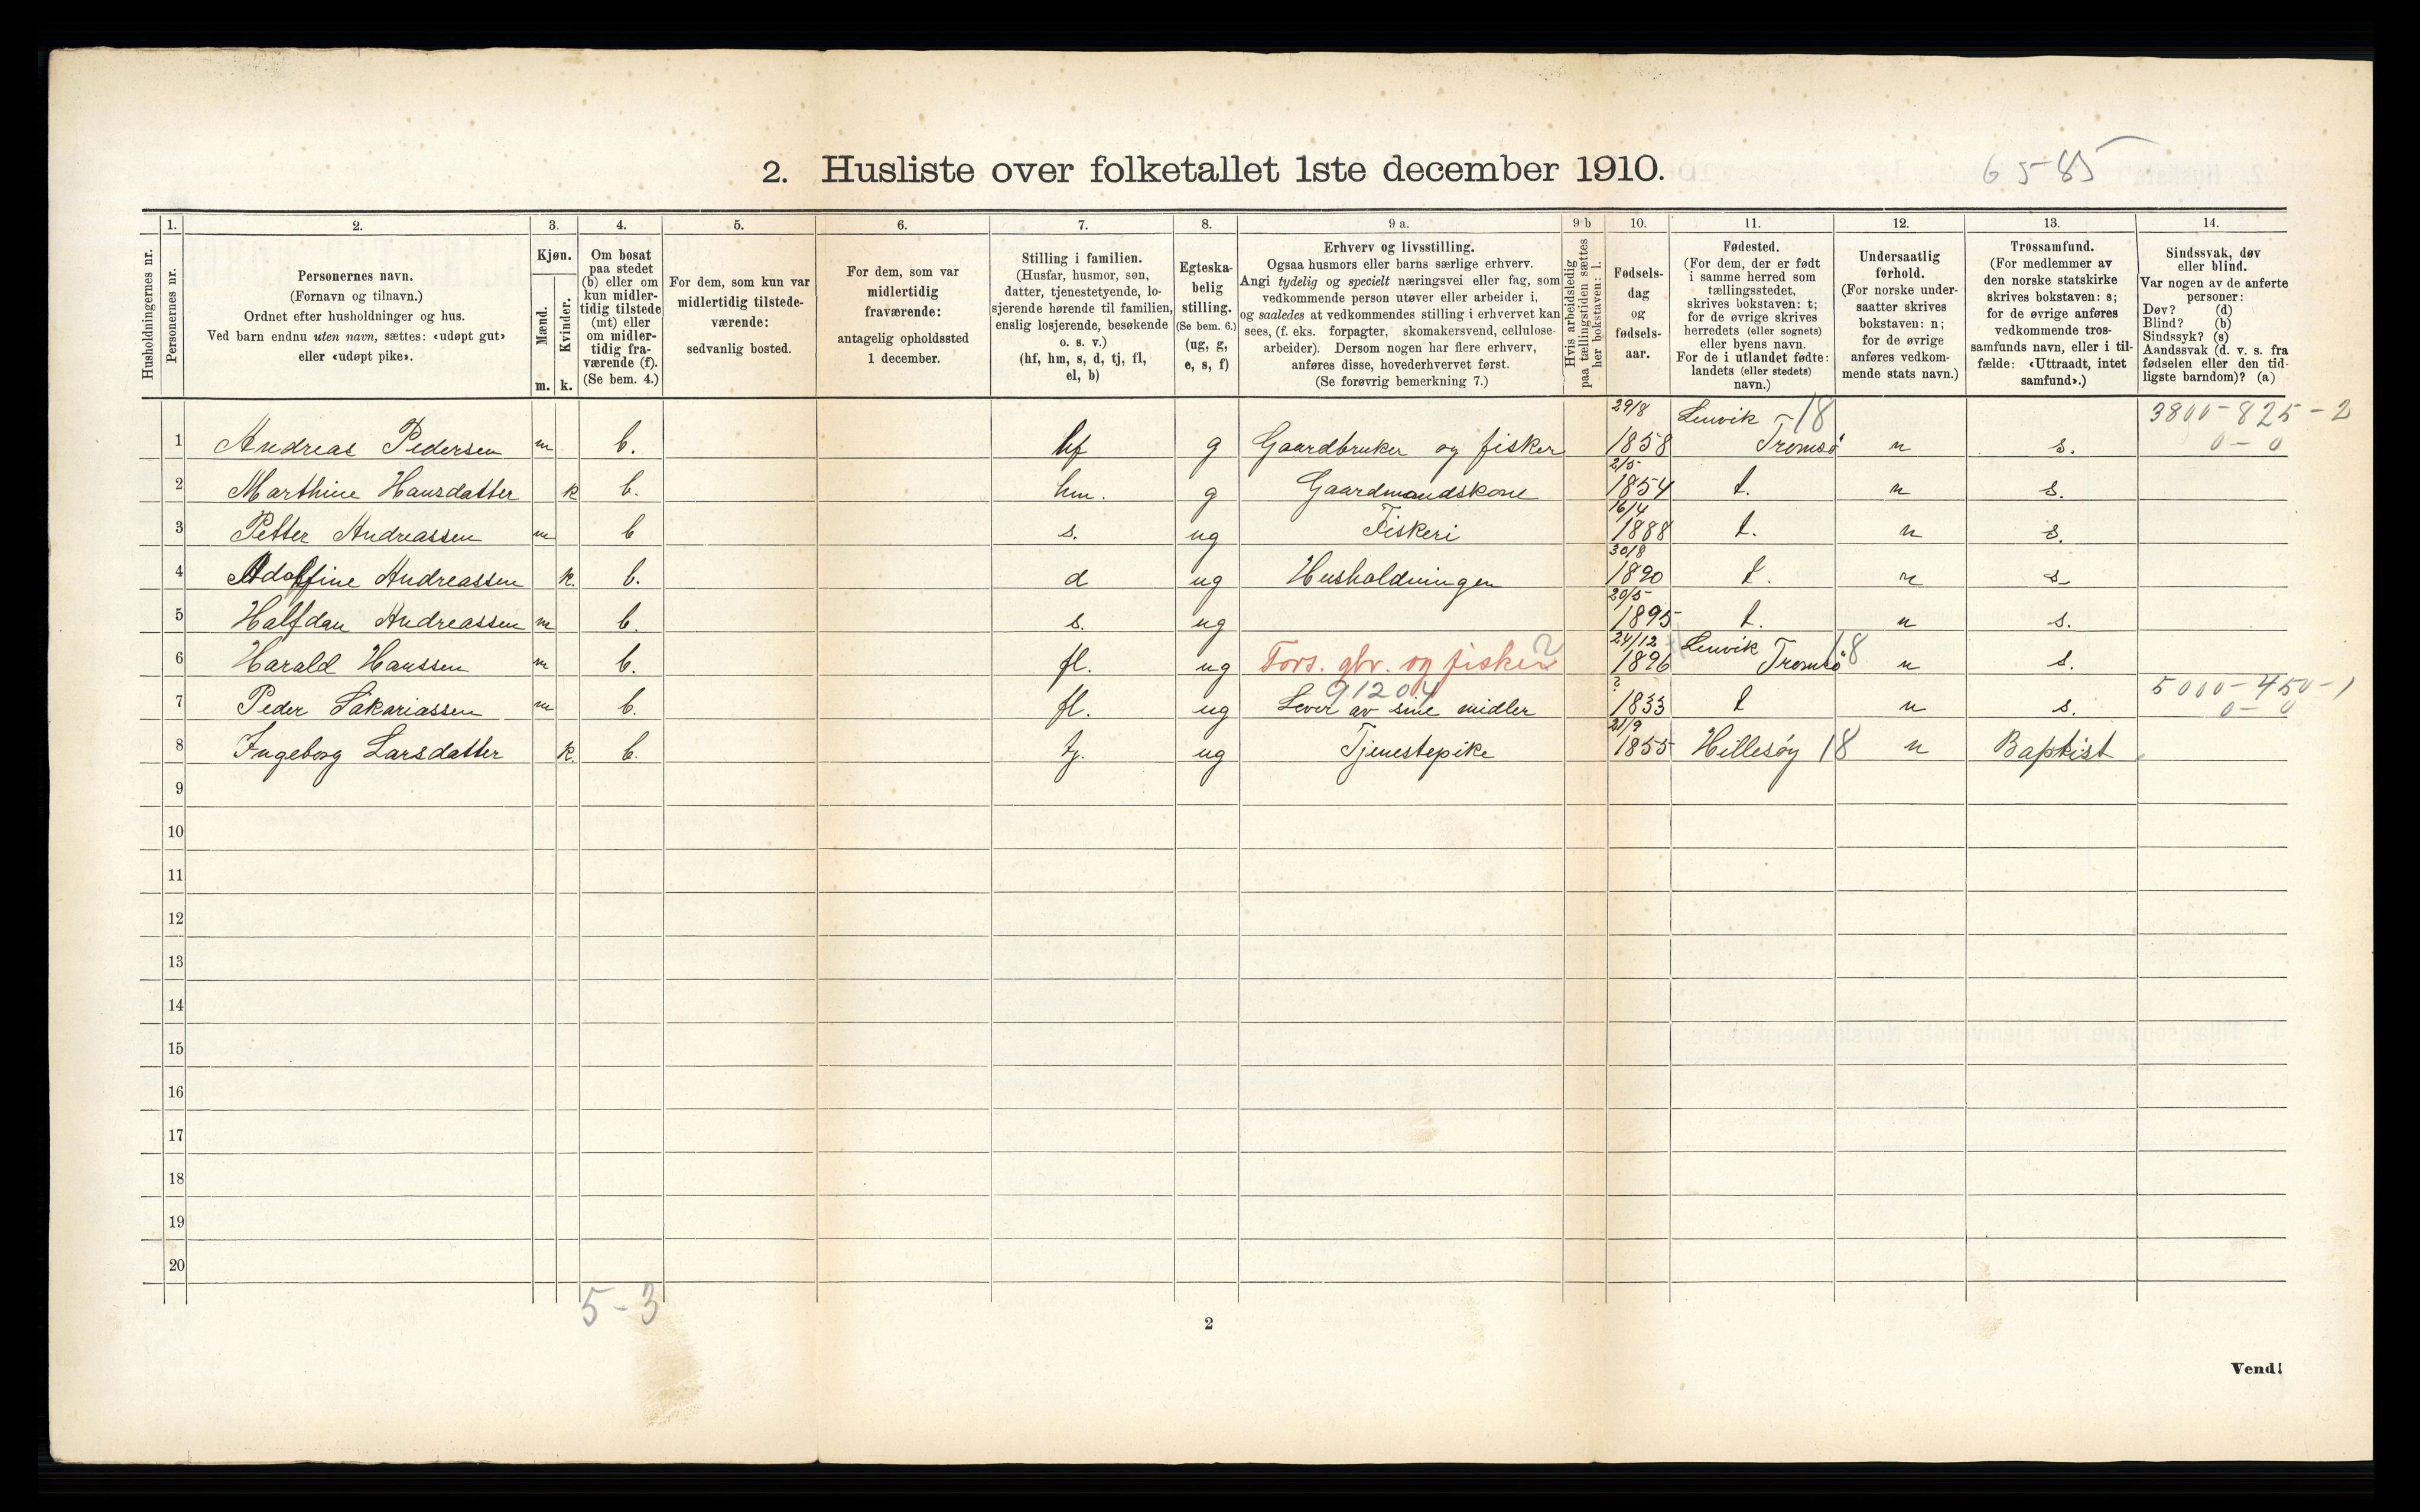 2. Husliste over folketallet 1ste december 1910.
65-85
1. 2. 3. 4. 5. 6. 7. 8. 9 a. 9 b 10. 11. 12. 13. 14.
Husholdningernes nr.
Personernes nr.
Personernes navn.
(Fornavn og tilnavn.)
Ordnet efter husholdninger og hus.
Ved barn endnu uten navn, sættes: «udøpt gut»
eller «udøpt pike».
Kjøn.
Mænd.
Kvinder.
m. k.
Om bosat
paa stedet
(b) eller om
kun midler-
tidig tilstede
(mt) eller
om midler-
tidig fra-
værende (f).
(Se bem. 4.)
For dem, som kun var
midlertidig tilstede-
værende:
sedvanlig bosted.
For dem, som var
midlertidig
fraværende:
antagelig opholdssted
1 december.
Stilling i familien.
(Husfar, husmor, søn,
datter, tjenestetyende, lo-
sjerende hørende til familien,
enslig losjerende, besøkende
o. s. v.)
(hf, hm, s, d, tj, fl,
el, b)
Egteska-
belig
stilling.
(Se bem. 6.)
(ug, g,
e, s, f)
Erhverv og livsstilling.
Ogsaa husmors eller barns særlige erhverv.
Angi tydelig og specielt næringsvei eller fag, som
vedkommende person utøver eller arbeider i,
og saaledes at vedkommendes stilling i erhvervet kan
sees, (f. eks. forpagter, skomakersvend, cellulose-
arbeider). Dersom nogen har flere erhverv,
anføres disse, hovederhvervet først.
(Se forøvrig bemerkning 7.)
Hvis arbeidsledig
paa tællingstiden sættes
her bokstaven: l.
Fødsels-
dag
og
fødsels-
aar.
Fødested.
(For dem, der er født
i samme herred som
tællingsstedet,
skrives bokstaven: t;
for de øvrige skrives
herredets (eller sognets)
eller byens navn.
For de i utlandet fødte:
landets (eller stedets)
navn.)
Undersaatlig
forhold.
(For norske under-
saatter skrives
bokstaven: n;
for de øvrige
anføres vedkom-
mende stats navn.)
Trossamfund.
(For medlemmer av
den norske statskirke
skrives bokstav: s;
for de øvrige anføres
vedkommende tros-
samfunds navn, eller i til-
fælde: «Uttraadt, intet
samfund».)
Sindssvak, døv
eller blind.
Var nogen av de anførte
personer:
Døv? (d)
Blind? (b)
Sindssyk? (s)
Aandssvak (d. v. s. fra
fødselen eller den tid-
ligste barndom)? (a)
29/8 Lenvik - 18 3800-825-2
1 Andreas Pedersen m b. hf g Gaardbruker og fisker 1858 Tromsø n s. 0-0
2/5
2 Marthine Hansdatter k b. hm. g Gaardmandskone 1854 t. n s.
16/4
3 Petter Andreassen m b s. ug Fiskeri 1888 t. n s.
30/8
4 Adolfine Andreassen k. b. d ug Husholdningen 1890 t. n s
20/5
5 Halfdan Andreassen m b. s. ug 1895 t. n s.
24/12 Lenvik 18
6 Harald Hanssen m b. fl. ug Fors. gbr. og fisker 2 1896 Tromsø n s.
91204 ? 5000-450-1
7 Peder Sakariassen m b. fl. ug Lever av sine midler 1833 t n s. 0-0
21/9
8 Ingeborg Larsdatter k. b. tj. ug Tjenestepike 1855 Hillesøy 18 n Baptist
9
10
11
12
13
14
15
16
17
18
19
20
5-3
2
Vend!